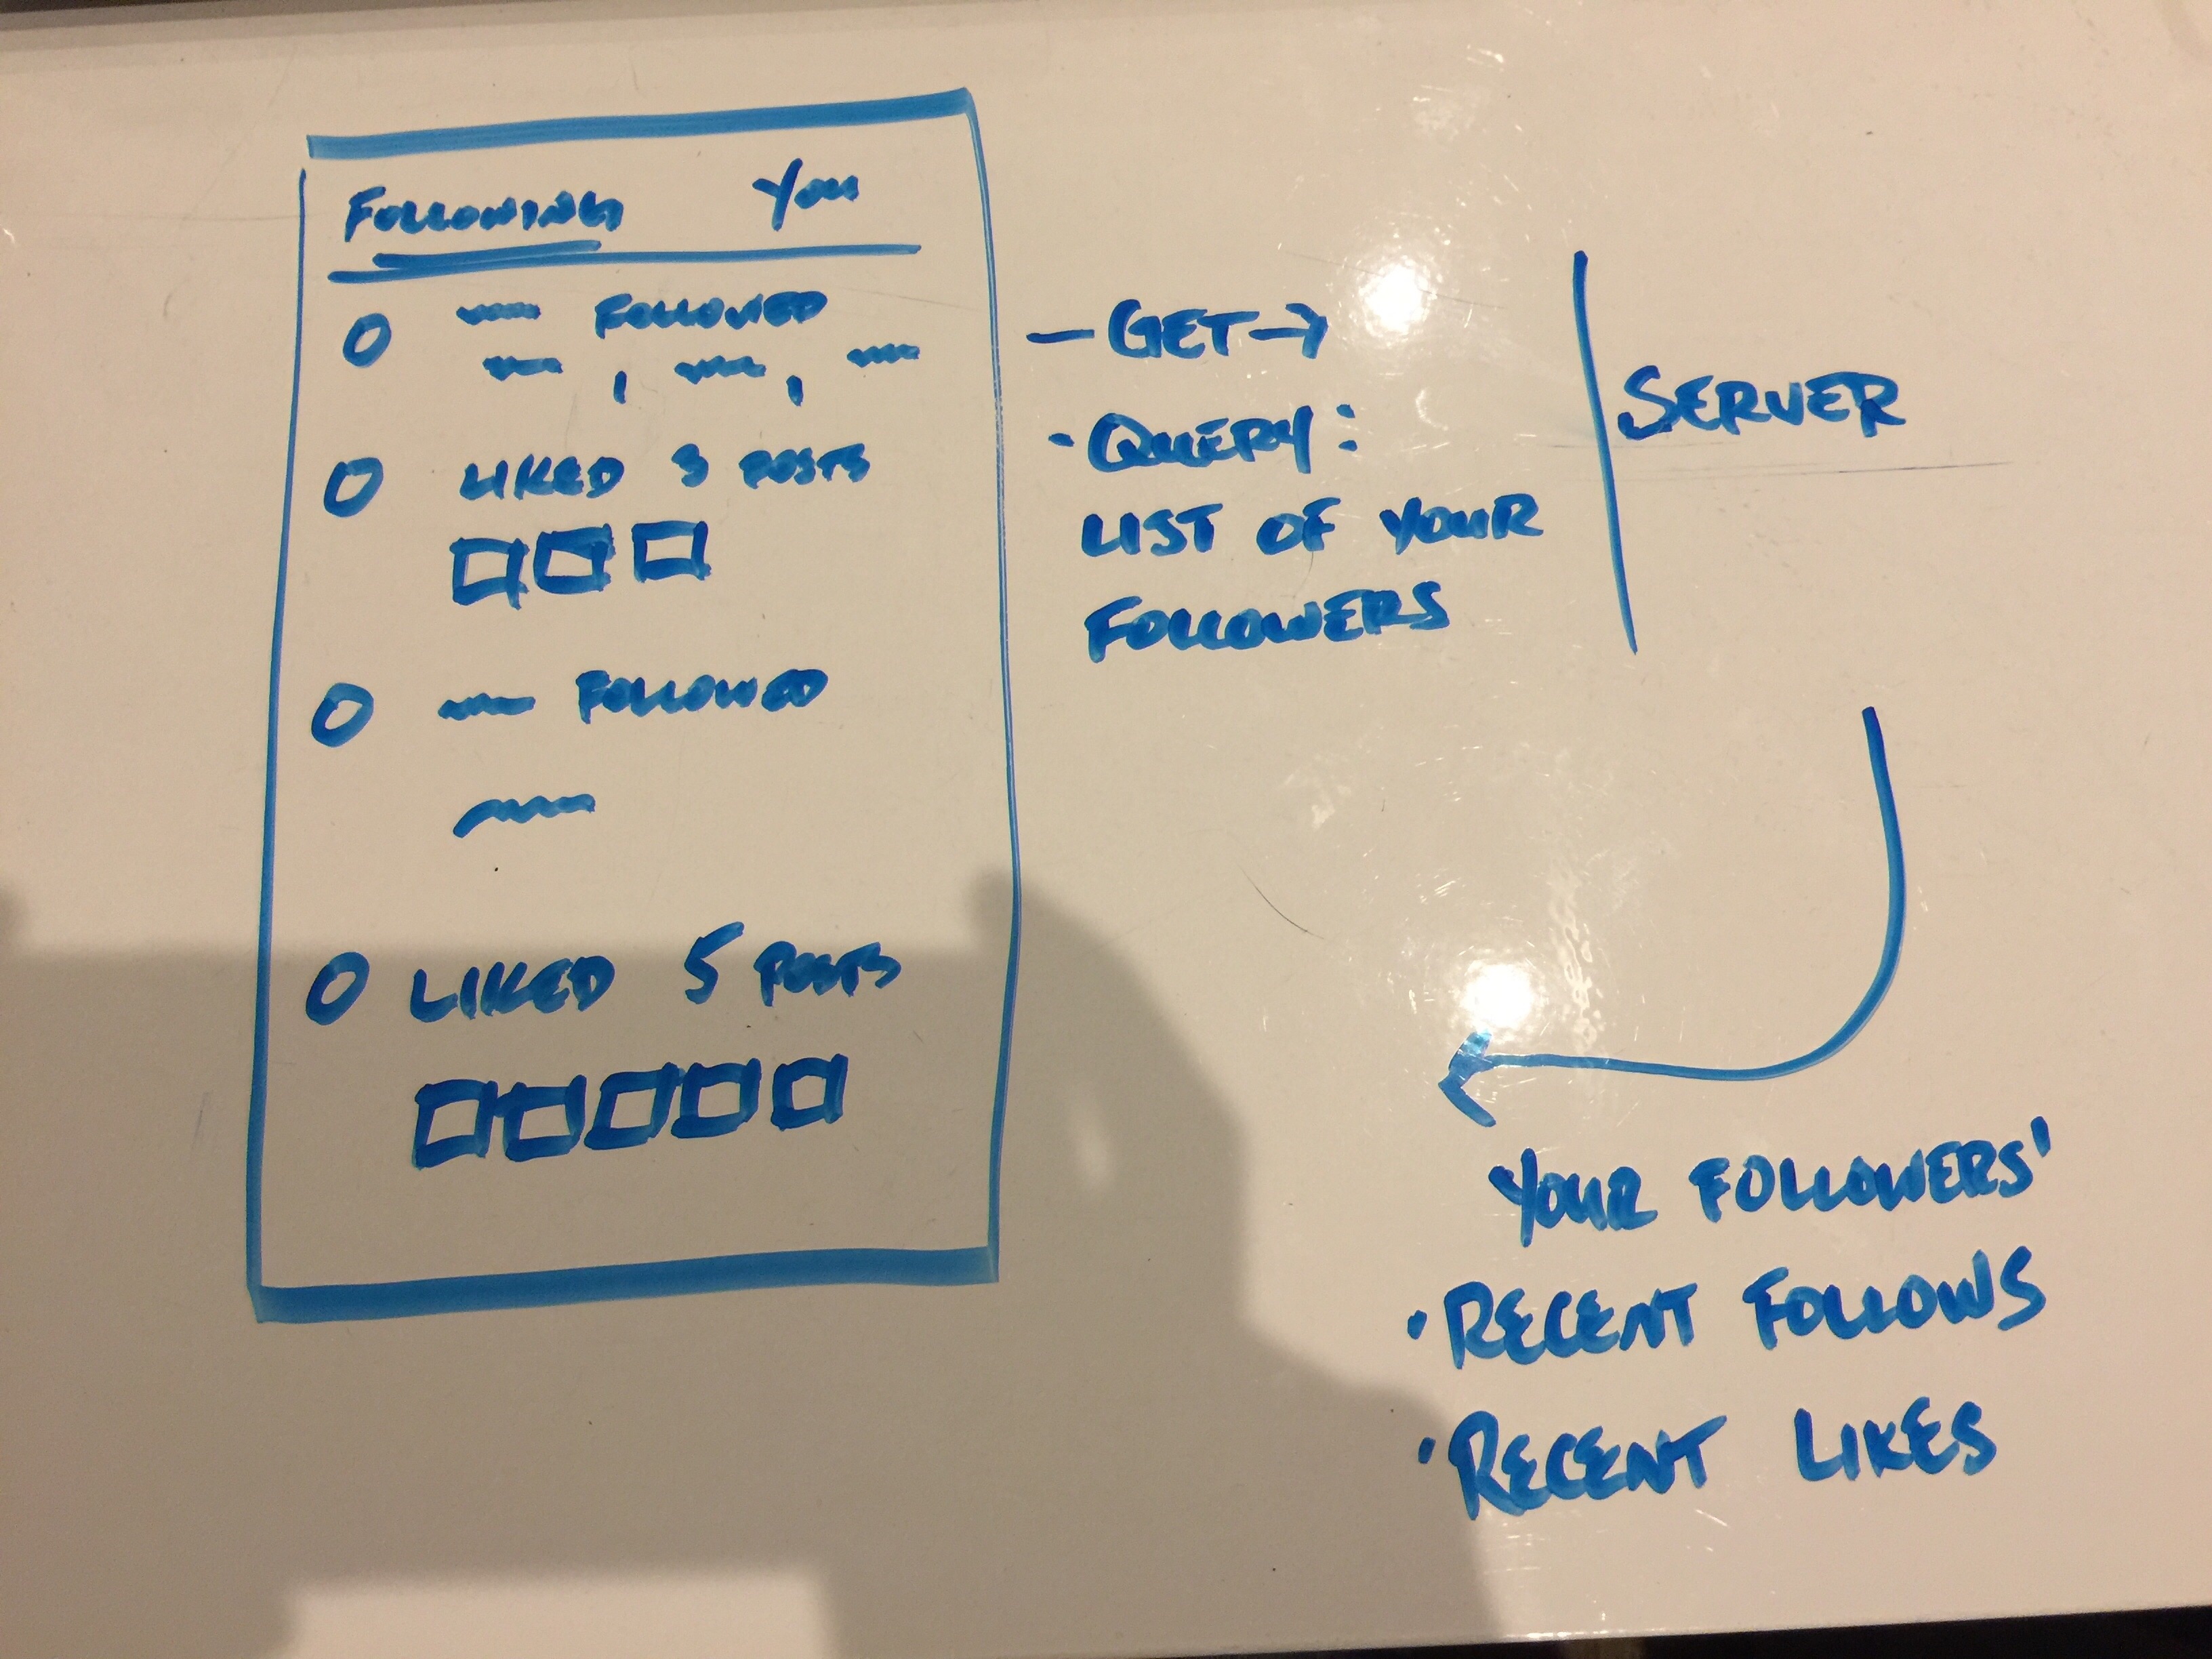 FOLLOWING You
FOLLOWED
, ,
LIKED 3 POSTS
FOLLOWED
LIKED 5 POSTS
— GET →
• QUERY:
LIST OF YOUR
FOLLOWERS
SERVER
YOUR FOLLOWERS'
• RECENT FOLLOWS
• RECENT LIKES